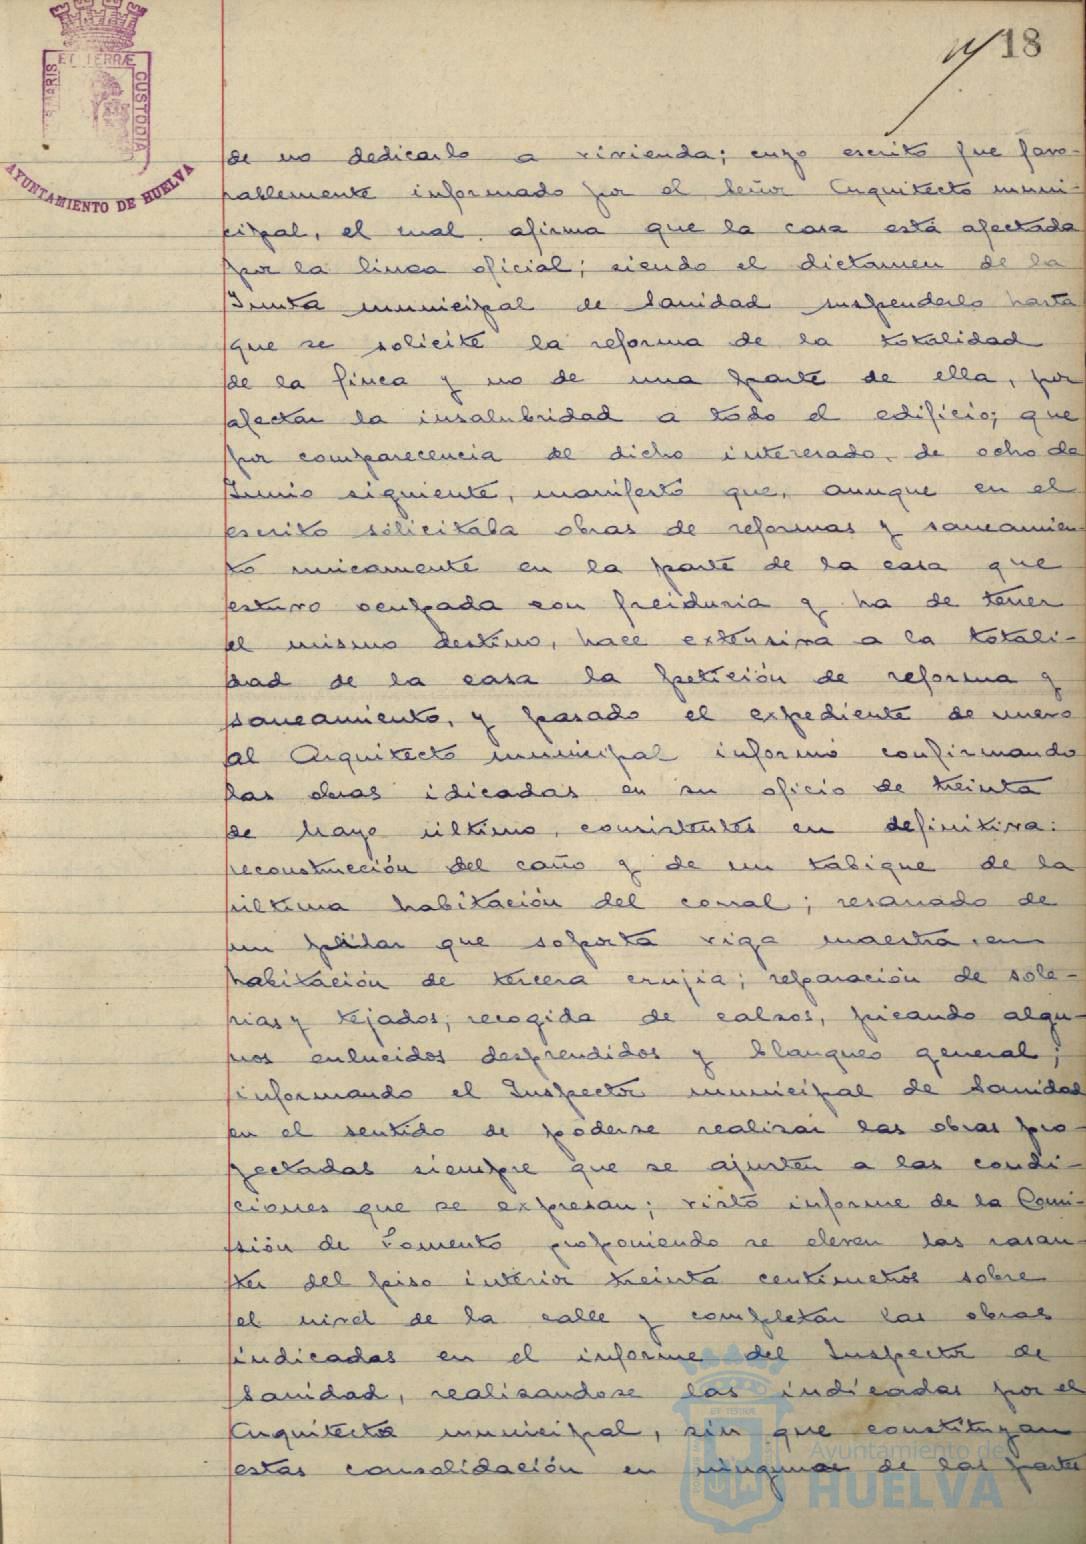 18
ET TERRÆ
MARIS
CUSTODIA
AYUNTAMIENTO DE HUELVA
de no dedicarlo a vivienda; cuyo escrito fue favo-
rablemente informado por el Señor Arquitecto muni-
cipal, el cual afirma que la casa está afectada
por la linea oficial; siendo el dictamen de la
Junta municipal de Sanidad suspenderlo hasta
que se solicite la reforma de la totalidad
de la finca y no de una parte de ella, por
afectar la insalubridad a todo el edificio; que
por comparecencia de dicho interesado, de ocho de
Junio siguiente, manifestó que, aunque en el
escrito solicitaba obras de reformas y saneamien-
to unicamente en la parte de la casa que
estuvo ocupada con freiduria y ha de tener
el mismo destino, hace extensiva a la totali-
dad de la casa la petición de reforma y
saneamiento, y pasado el expediente de nuevo
al Arquitecto municipal informó confirmando
las obras idicadas en su oficio de treinta
de mayo último, consistentes en definitiva:
reconstrucción del caño y de un tabique de la
última habitación del corral; resanado de
un pilar que soporta viga maestra en
habitación de tercera crujia; reparación de sole-
rias y tejados; recogida de calzos, picando algu-
nos enlucidos desprendidos y blanqueo general;
informando el Inspector municipal de Sanidad
en el sentido de poderse realizar las obras pro-
yectadas siempre que se ajusten a las condi-
ciones que se expresan; visto informe de la Comi-
sión de Fomento proponiendo se eleven las rasan-
tes del piso interior treinta centimetros sobre
el nivel de la calle y completar las obras
indicadas en el informe del Inspector de
Sanidad, realizandose las indicadas por el
Arquitecto municipal, sin que constituyan
estas consolidación en ninguna de las partes
Ayuntamiento de
HUELVA